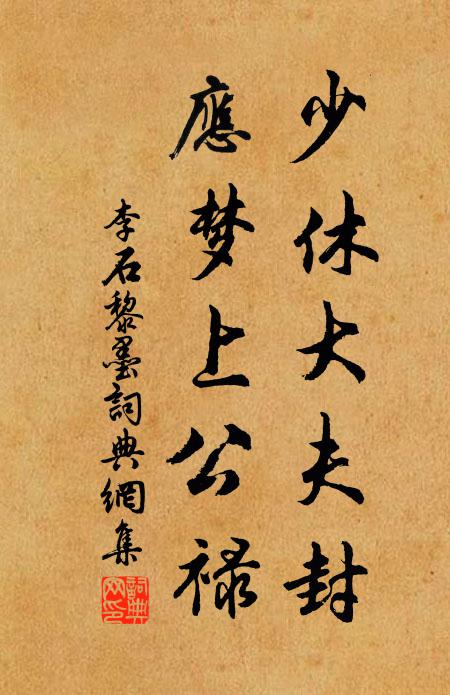 少休大夫封
應梦上公禄
李石黎墨詞典網集